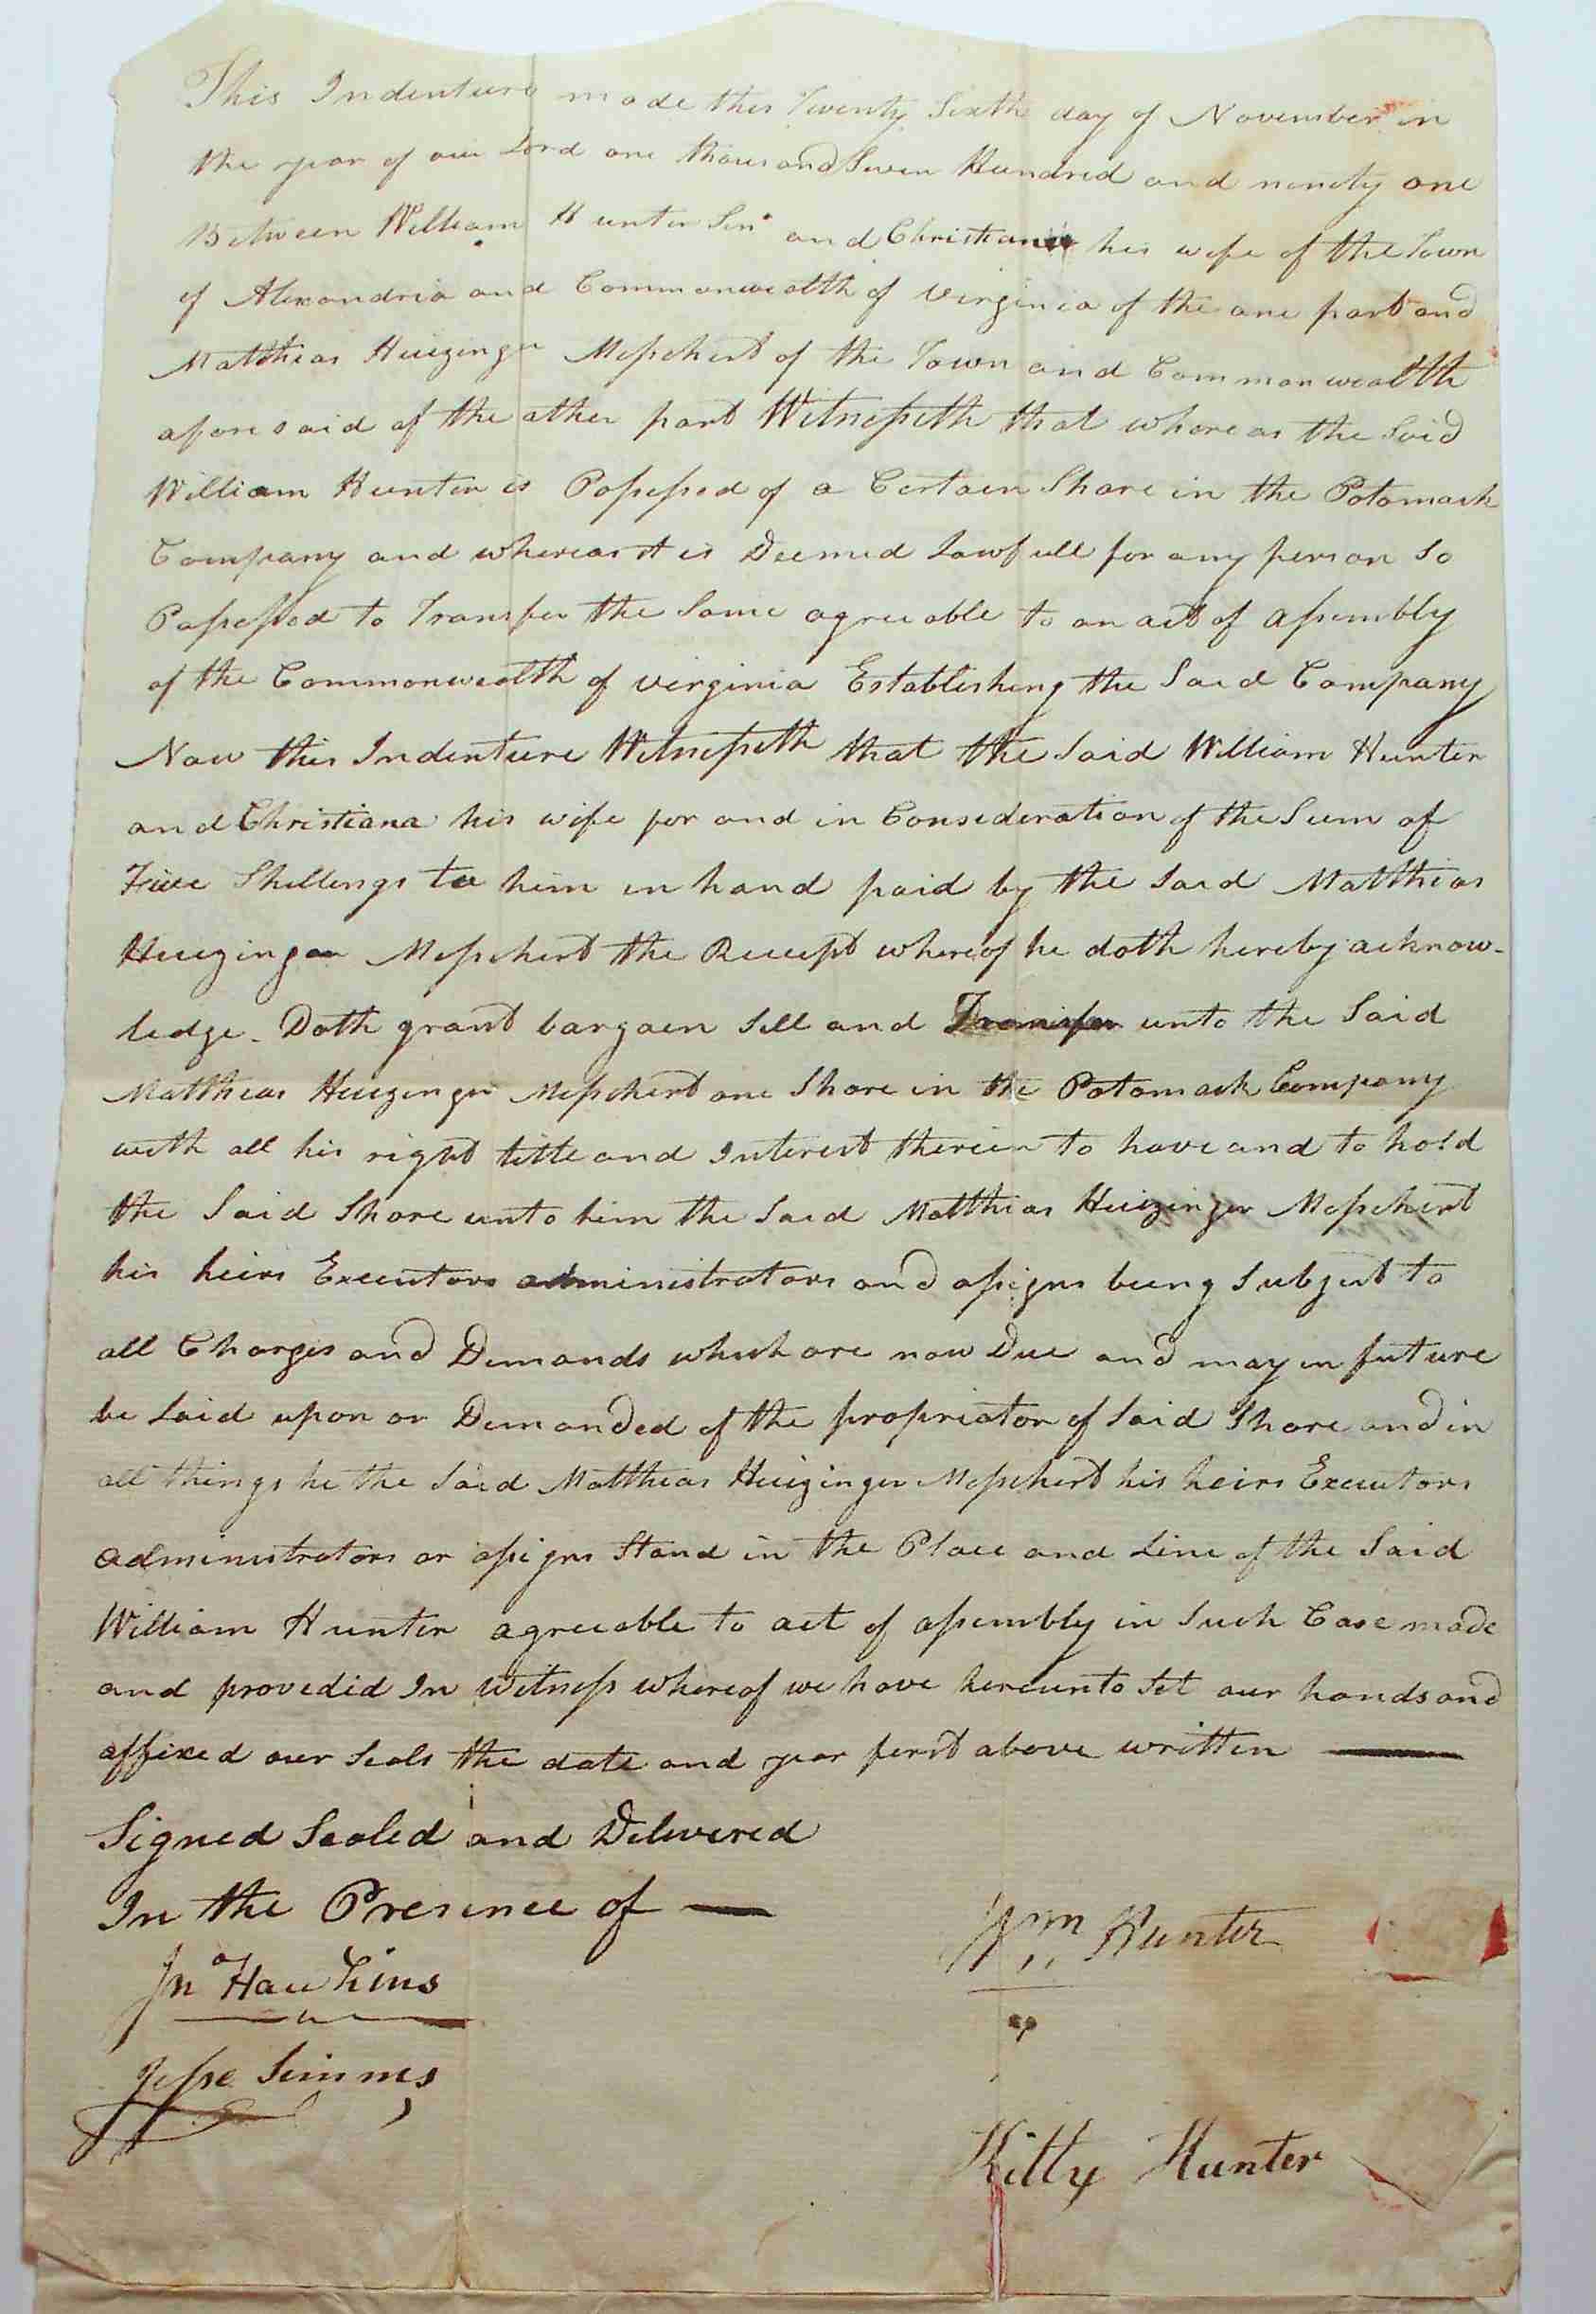 This Indenture made this Twenty Sixth day of November in
the year of our Lord one thousand Seven Hundred and ninety one
Between William Hunter Senr and Christiana his wife of the Town
of Alexandria and Commonwealth of Virginia of the one part and
Matthias Huizinger Messchert of the Town and Commonwealth
aforesaid of the other part Witnesseth that whereas the Said
William Hunter is Possessed of a Certain Share in the Potomack
Company and whereas it is Deemed Lawfull for any person So
Possessed to Transfer the Same agreeable to an act of assembly
of the Commonwealth of virginia Establishing the Said Company
Now this Indenture Witnesseth that the Said William Hunter
and Christiana his wife for and in Consideration of the Sum of
Five Shillings to him in hand paid by the Said Matthias
Huizinger Messchert the Receipt whereof he doth hereby acknow-
ledge. Doth grant bargain Sell and Transfer unto the Said
Matthias Huizinger Messchert one Share in the Potomack Company
with all his right title and Interest therein to have and to hold
the Said Share unto him the Said Matthias Huizinger Messchert
his heirs Executors administrators and assigns being Subject to
all Charges and Demands which are now Due and may in future
be Laid upon or Demanded of the proprietor of Said Share and in
all things he the Said Matthias Huizinger Messchert his heirs Executors
administrators or assigns Stand in the Place and Line of the Said
William Hunter agreeable to act of assembly in Such Case made
and provedid In Witness whereof we have hereunto Set our hands and
affixed our Seals the date and year first above written
Signed Sealed and Delivered
In the Presence of
Jno Hawkins
Jesse Simms
Wm Hunter
Kitty Hunter